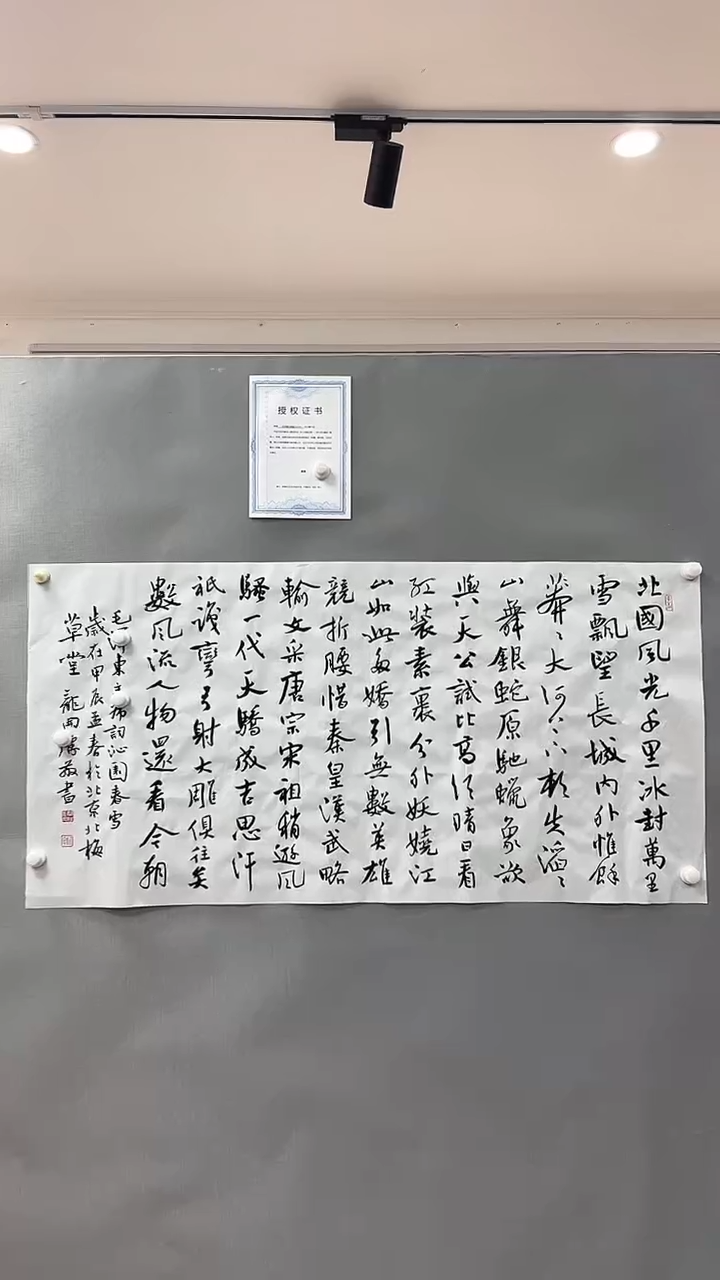 授权证书
北國風光千里冰封萬里
雪飄望長城内外惟餘
莽〻大河上下頓失滔〻
山舞銀蛇原馳蠟象欲
與天公試比髙須晴日看
紅裝素裹分外妖嬈江
山如此多嬌引無數英雄
競折腰惜秦皇漢武略
輸文采唐宗宋祖稍遜風
騷一代天驕成吉思汗
祇識彎弓射大雕俱往矣
數風流人物還看今朝
毛澤東主席詞沁園春雪
歲在甲辰孟春於北京北梅
草堂龍田
書